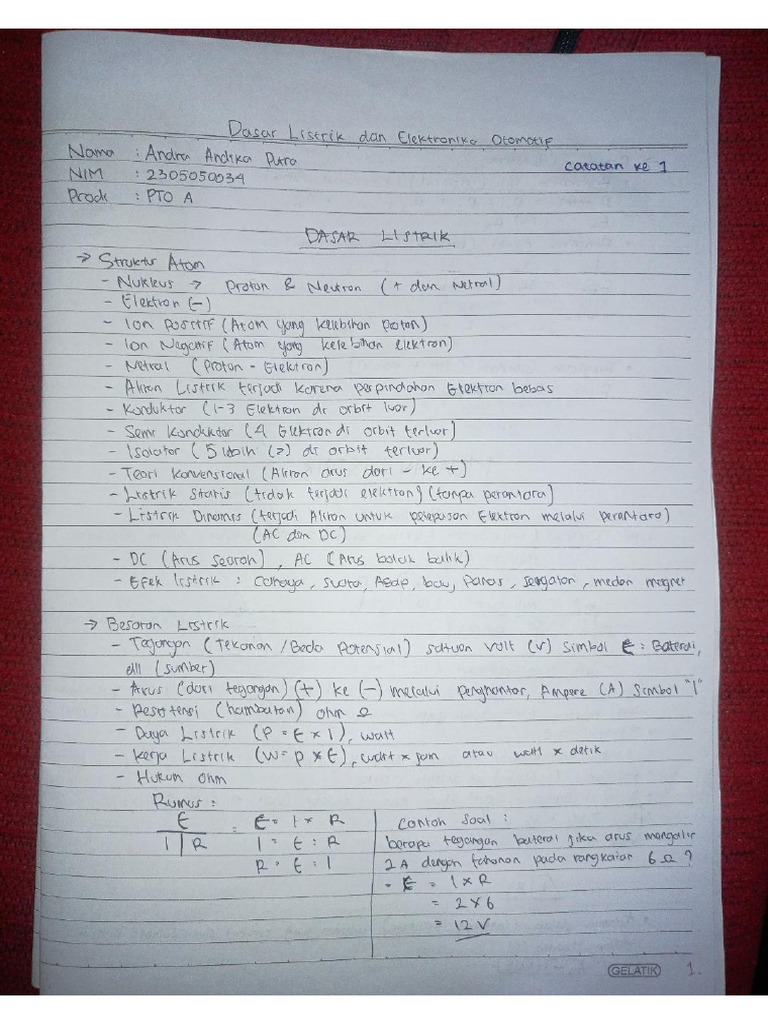 Dasar Listrik dan Elektronika Otomotif
Nama : Andra Andika Putra
catatan ke 1
NIM : 2305050034
Prodi : PTO A
DASAR LISTRIK
→ Struktur Atom
- Nukleus → Proton & Neutron (+ dan Netral)
- Elektron (-)
- Ion Positif (Atom yang kelebihan proton)
- Ion Negatif (Atom yang kelebihan elektron)
- Netral (Proton - Elektron)
- Aliran Listrik terjadi karena perpindahan Elektron bebas
- Konduktor (1-3 Elektron di orbit luar)
- Semi Konduktor (4 Elektron di orbit terluar)
- Isolator (5 lebih (>) di orbit terluar)
- Teori Konvensional (Aliran arus dari - ke +)
- Listrik Statis (tidak terjadi elektron) (tanpa perantara)
- Listrik Dinamis (terjadi Aliran untuk pelepasan Elektron melalui perantara)
(AC dan DC)
- DC (Arus Searah), AC (Arus bolak balik)
- Efek listrik : Cahaya, suara, Asap, bau, Panas, sengatan, medan magnet
→ Besaran Listrik
- Tegangan (Tekanan / Beda Potensial) satuan volt (v) simbol E : Baterai,
dll (sumber)
- Arus (dari tegangan) (+) ke (-) melalui penghantar, Ampere (A) Simbol "I"
- Resistensi (hambatan) ohm Ω
- Daya Listrik (P = E × I), watt
- Kerja Listrik (W = P × t), watt × jam atau watt × detik
- Hukum ohm
Rumus :
E
I | R
= E = I × R
I = E : R
R = E : I
Contoh Soal :
berapa tegangan baterai jika arus mengalir
2 A dengan tahanan pada rangkaian 6 Ω ?
- E = I × R
= 2 × 6
= 12 V
GELATIK
1.